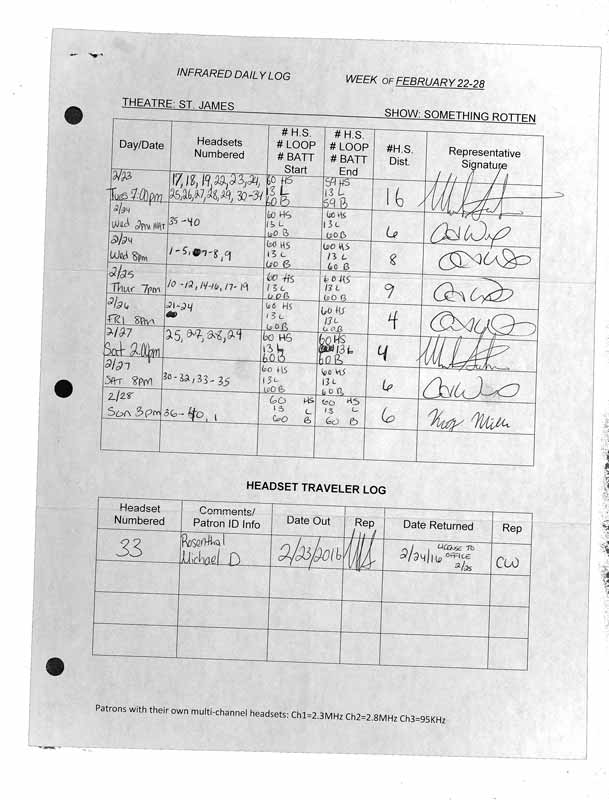 INFRARED DAILY LOG WEEK OF FEBRUARY 22-28
THEATRE: ST. JAMES SHOW: SOMETHING ROTTEN
Day/Date Headsets Numbered # H.S. # LOOP # BATT Start # H.S. # LOOP # BATT End #H.S. Dist. Representative Signature
2/23 Tues 7:00pm 17,18,19,22,23,24, 25,26,27,28,29,30-34 60 HS 13 L 60 B 59 HS 13 L 59 B 16
2/24 Wed 2pm MAT 35-40 60 HS 13 L 60 B 60 HS 13 L 60 B 6
2/24 Wed 8pm 1-5, 7-8, 9 60 HS 13 L 60 B 60 HS 13 L 60 B 8
2/25 Thur 7pm 10-12, 14-16, 17-19 60 HS 13 L 60 B 60 HS 13 L 60 B 9
2/26 FRI 8pm 21-24 60 HS 13 L 60 B 60 HS 13 L 60 B 4
2/27 Sat 2:00pm 25, 27, 28, 29 60 HS 13 L 60 B 60 HS 13 L 60 B 4
2/27 SAT 8PM 30-32, 33-35 60 HS 13 L 60 B 60 HS 13 L 60 B 6
2/28 Sun 3pm 36-40, 1 60 HS 13 L 60 B 60 HS 13 L 60 B 6
HEADSET TRAVELER LOG
Headset Numbered Comments/ Patron ID Info Date Out Rep Date Returned Rep
33 Rosenthal Michael D 2/23/2016 2/24/16 LICENSE TO OFFICE 2/25 CW
Patrons with their own multi-channel headsets: Ch1=2.3MHz Ch2=2.8MHz Ch3=95KHz